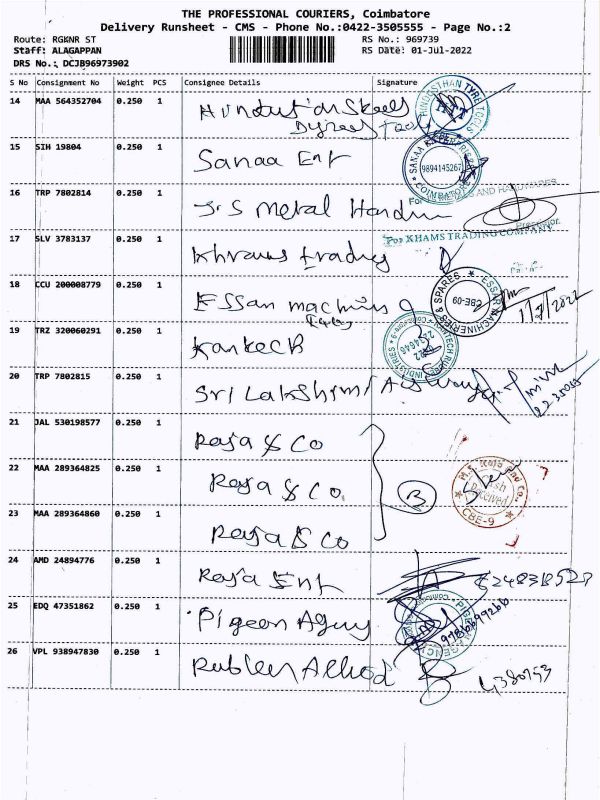 THE PROFESSIONAL COURIERS, Coimbatore
Delivery Runsheet - CMS - Phone No.:0422-3505555 - Page No.:2
Route: RGKNR ST RS No.: 969739
Staff: ALAGAPPAN RS Date: 01-Jul-2022
DRS No.: DCJB96973902
S No Consignment No Weight PCS Consignee Details Signature
14 MAA 564352704 0.250 1
HINDUSTHAN TYRE TOOLS
15 SIH 19804 0.250 1 Sanaa Ent
9894145267
COIMBATORE
16 TRP 7802814 0.250 1 S.S Metal
17 SLV 3783137 0.250 1
For KHAMS TRADING COMPANY
18 CCU 200008779 0.250 1 Essan
MACHINERIES & SPARES
CBE-09
1/7/2022
19 TRZ 320060291 0.250 1
INDUSTRIES
20 TRP 7802815 0.250 1 Sri Lakshimi
21 JAL 530198577 0.250 1 Raja & Co
22 MAA 289364825 0.250 1 Raja & Co.
3
CBE-9
23 MAA 289364860 0.250 1 Raja & Co
24 AMD 24894776 0.250 1 Raja Ent
25 EDQ 47351862 0.250 1 Pigeon
26 VPL 938947830 0.250 1